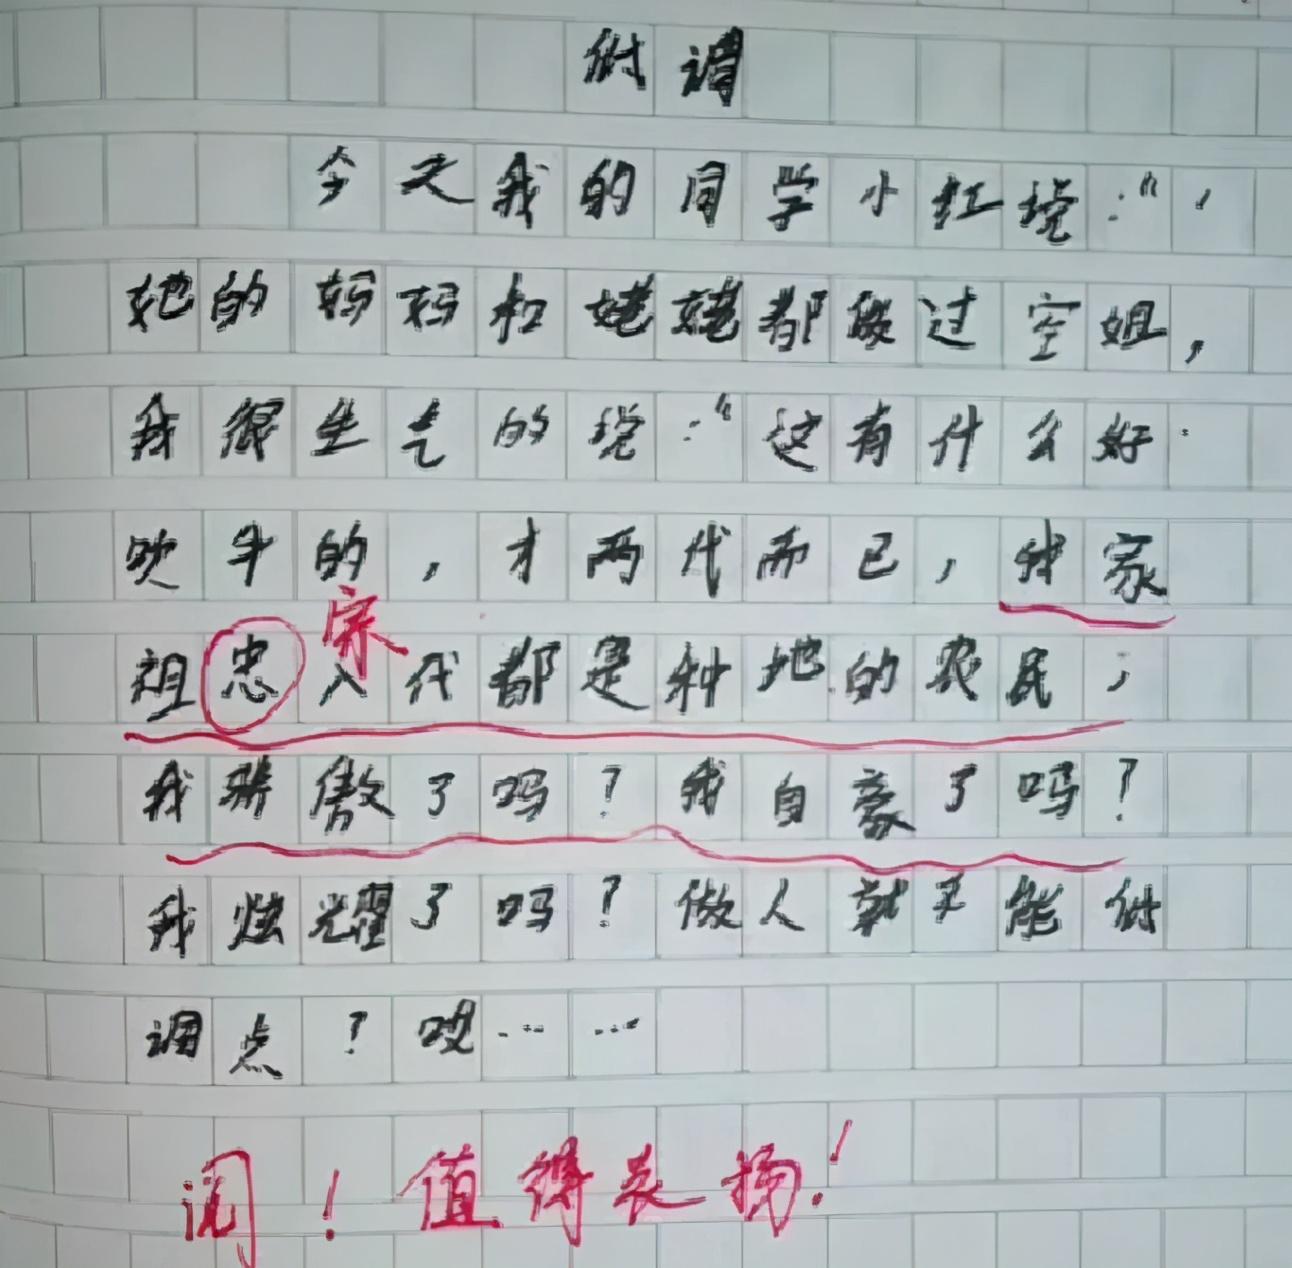 低调
今天我的同学小红说:"，
她的妈妈和姥姥都做过空姐，
我很生气的说:"这有什么好
吹牛的，才两代而已，我家
宗
祖忠八代都是种地的农民，
我骄傲了吗?我自豪了吗?
我炫耀了吗?做人就不能低
调点?哎……
阅!值得表扬!